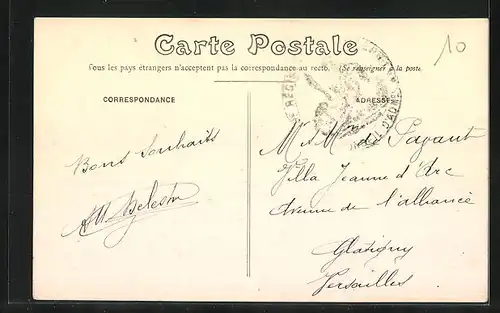 Carte Postale
10
Tous les pays étrangers n'acceptent pas la correspondance au recto. (Se renseigner à la poste
CORRESPONDANCE
ADRESSE
Bons Souhaits
M et Mme de Payant
Villa Jeanne d'Arc
Avenue de l'alliance
Glatigny
Versailles